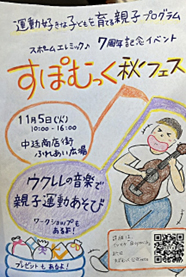 運動好きな子どもを育む親子プログラム
7周年記念イベント
すぽむっく秋フェス
11月5日(火)
10:00-16:00
中延商店街
ふれあい広場
ウクレレの音楽で
親子運動あそび
ワークショップも
あるよ!
プレゼントもあるよ!